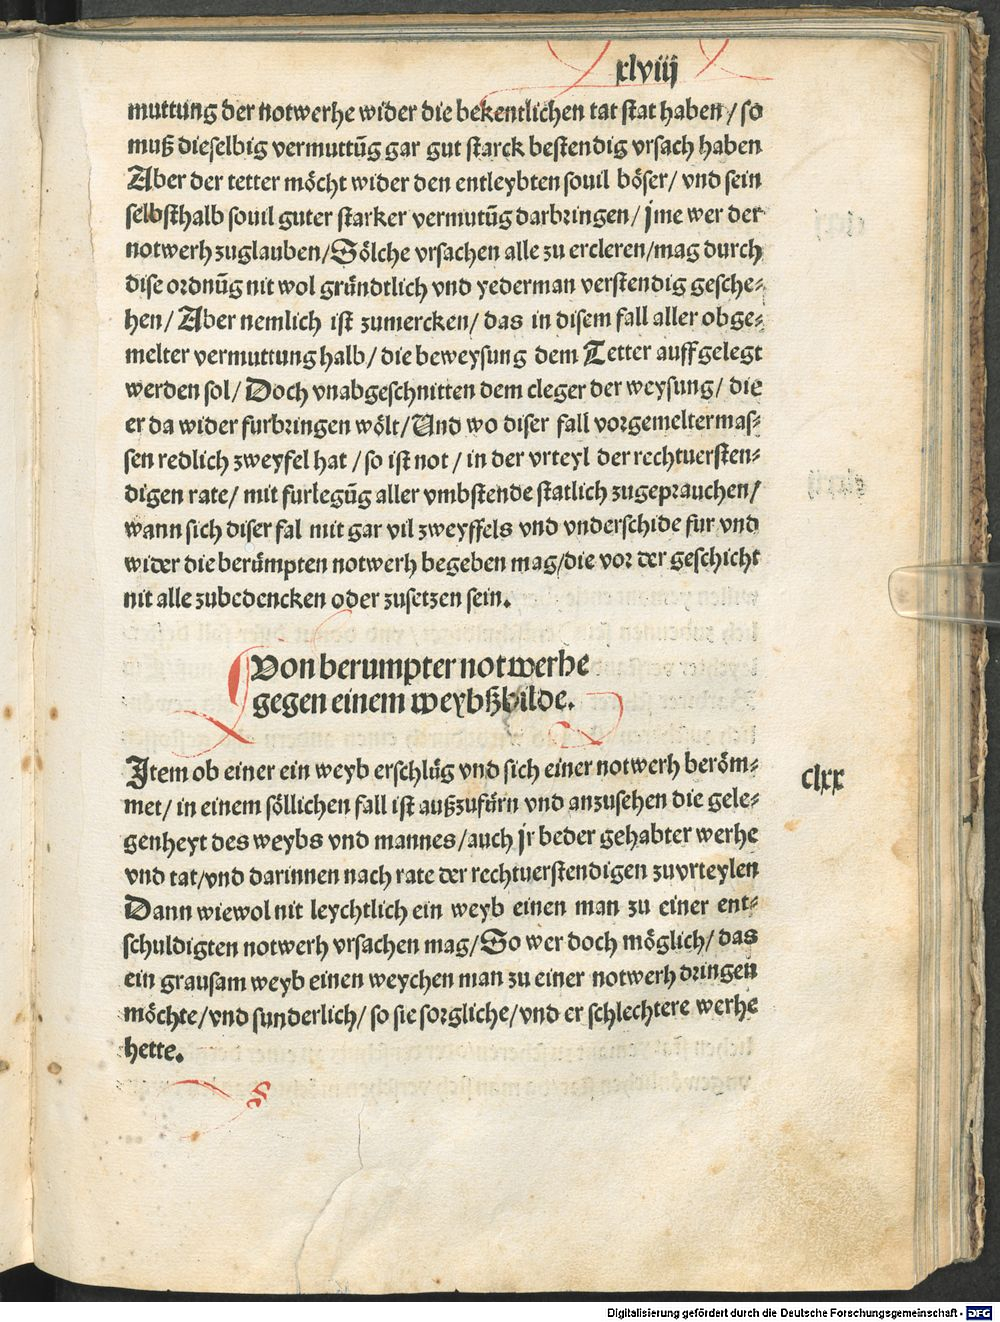 xlviij
muttung der notwerhe wider die bekentlichen tat stat haben / so
muß dieselbig vermuttūg gar gut starck bestendig vrsach haben
Aber der tetter möcht wider den entleybten souil böser / vnd sein
selbsthalb souil guter starker vermutūg darbringen / jme wer der
notwerh zuglauben / Sölche vrsachen alle zu ercleren / mag durch
dise ordnūg nit wol gründtlich vnd yederman verstendig gesche⸗
hen / Aber nemlich ist zumercken / das in disem fall aller obge⸗
melter vermuttung halb / die beweysung dem Tetter auffgelegt
werden sol / Doch vnabgeschnitten dem cleger der weysung / die
er da wider furbringen wölt / Und wo diser fall vorgemelter mas⸗
sen redlich zweyfel hat / so ist not / in der vrteyl der rechtuersten⸗
digen rate / mit furlegūg aller vmbstende statlich zugeprauchen /
wann sich diser fal mit gar vil zweyffels vnd vnderschide fur vnd
wider die berümpten notwerh begeben mag / die vor der geschicht
nit alle zubedencken oder zusetzen sein.
Von berumpter notwerhe
gegen einem weybßbilde.
Jtem ob einer ein weyb erschlüg vnd sich einer notwerh beröm⸗
met / in einem söllichen fall ist außzufürn vnd anzusehen die gele⸗
genheyt des weybs vnd mannes / auch jr beder gehabter werhe
vnd tat / vnd darinnen nach rate der rechtuerstendigen zuvrteylen
Dann wiewol nit leychtlich ein weyb einen man zu einer ent⸗
schuldigten notwerh vrsachen mag / So wer doch möglich / das
ein grausam weyb einen weychen man zu einer notwerh dringen
möchte / vnd sunderlich / so sie sorgliche / vnd er schlechtere werhe
hette.
clxx
Digitalisierung gefördert durch die Deutsche Forschungsgemeinschaft - DFG